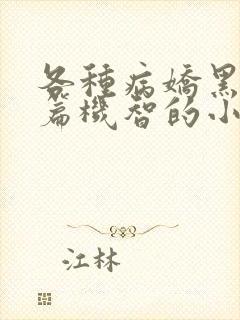 各種病嬌黑
篇機智的小
江林